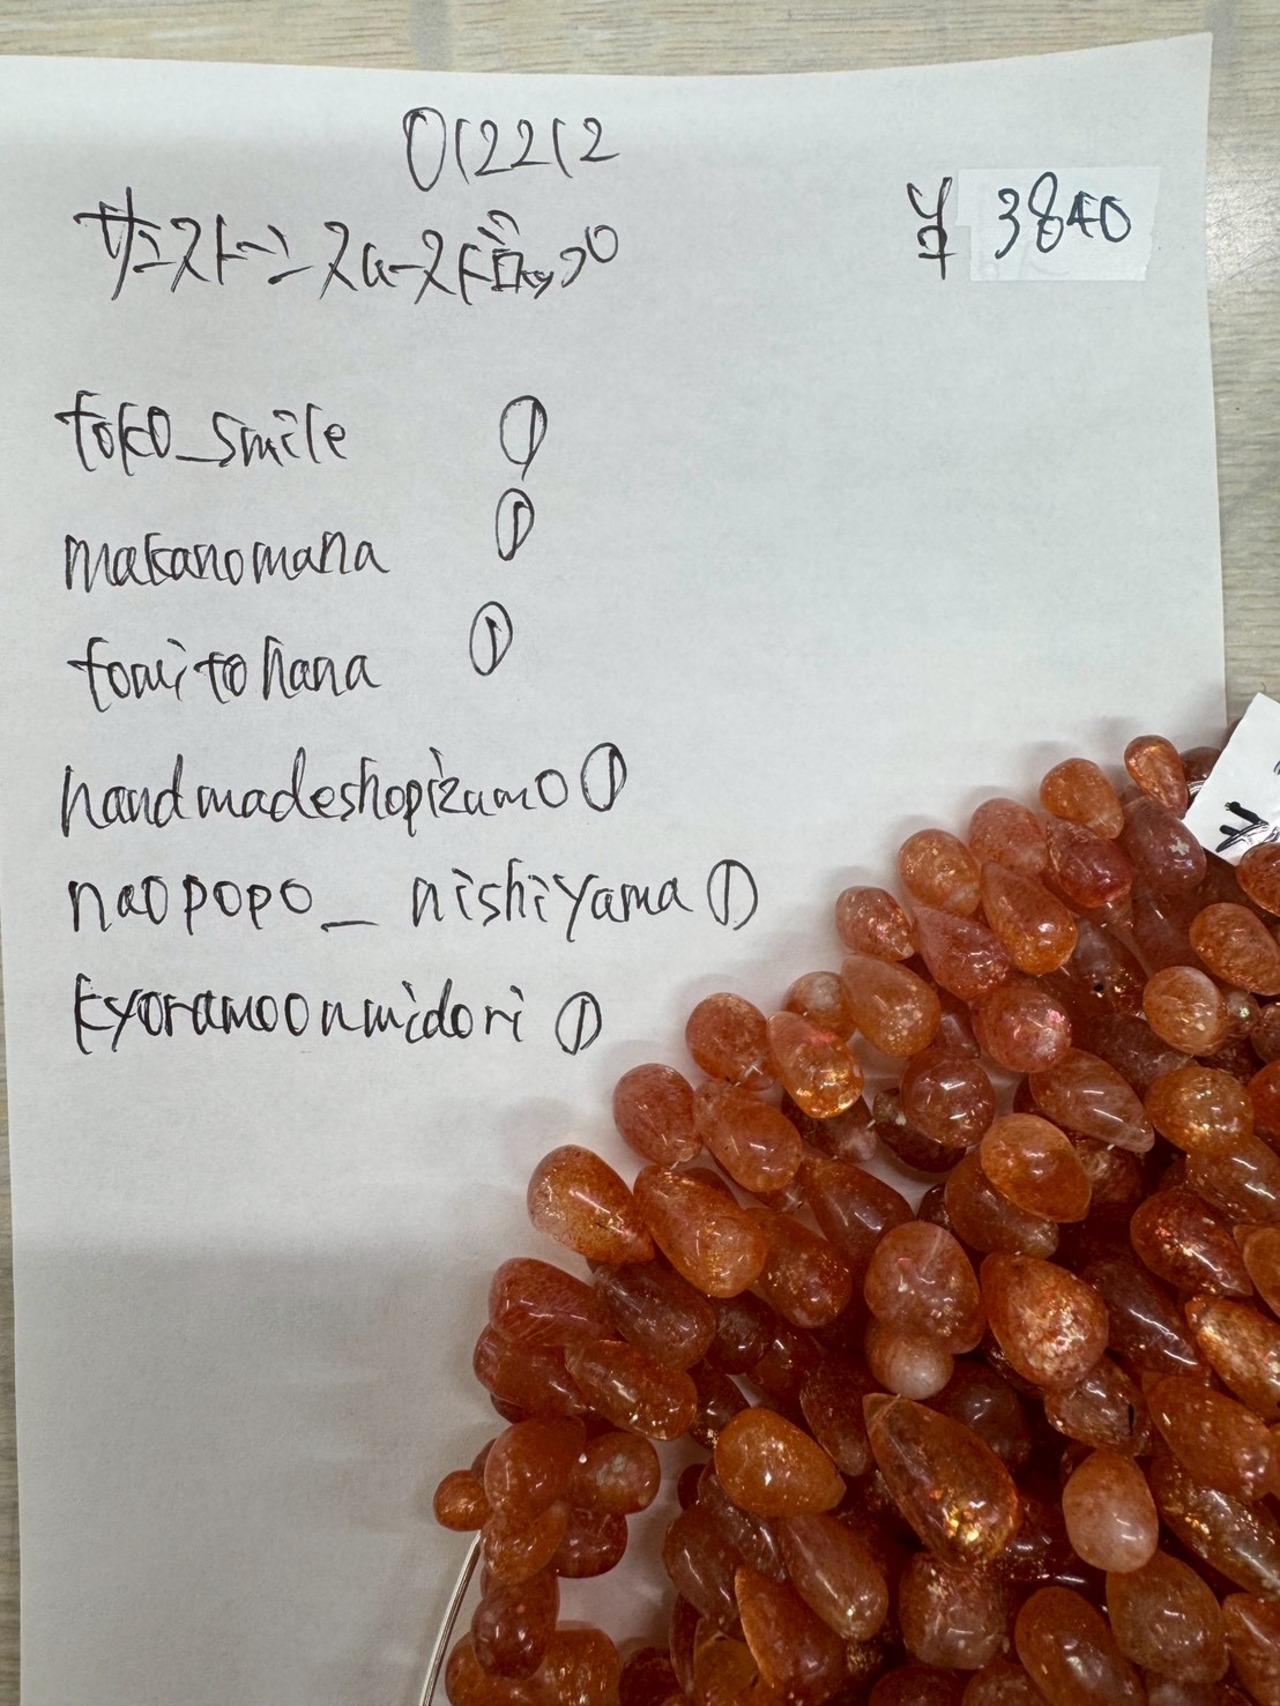 012212
¥ 3840
サンストーン スムースドロップ
toko_smile ①
makanomana ①
tomitohana ①
handmadeshopizumo ①
naopopo_nishiyama ①
kyoramoonmidori ①